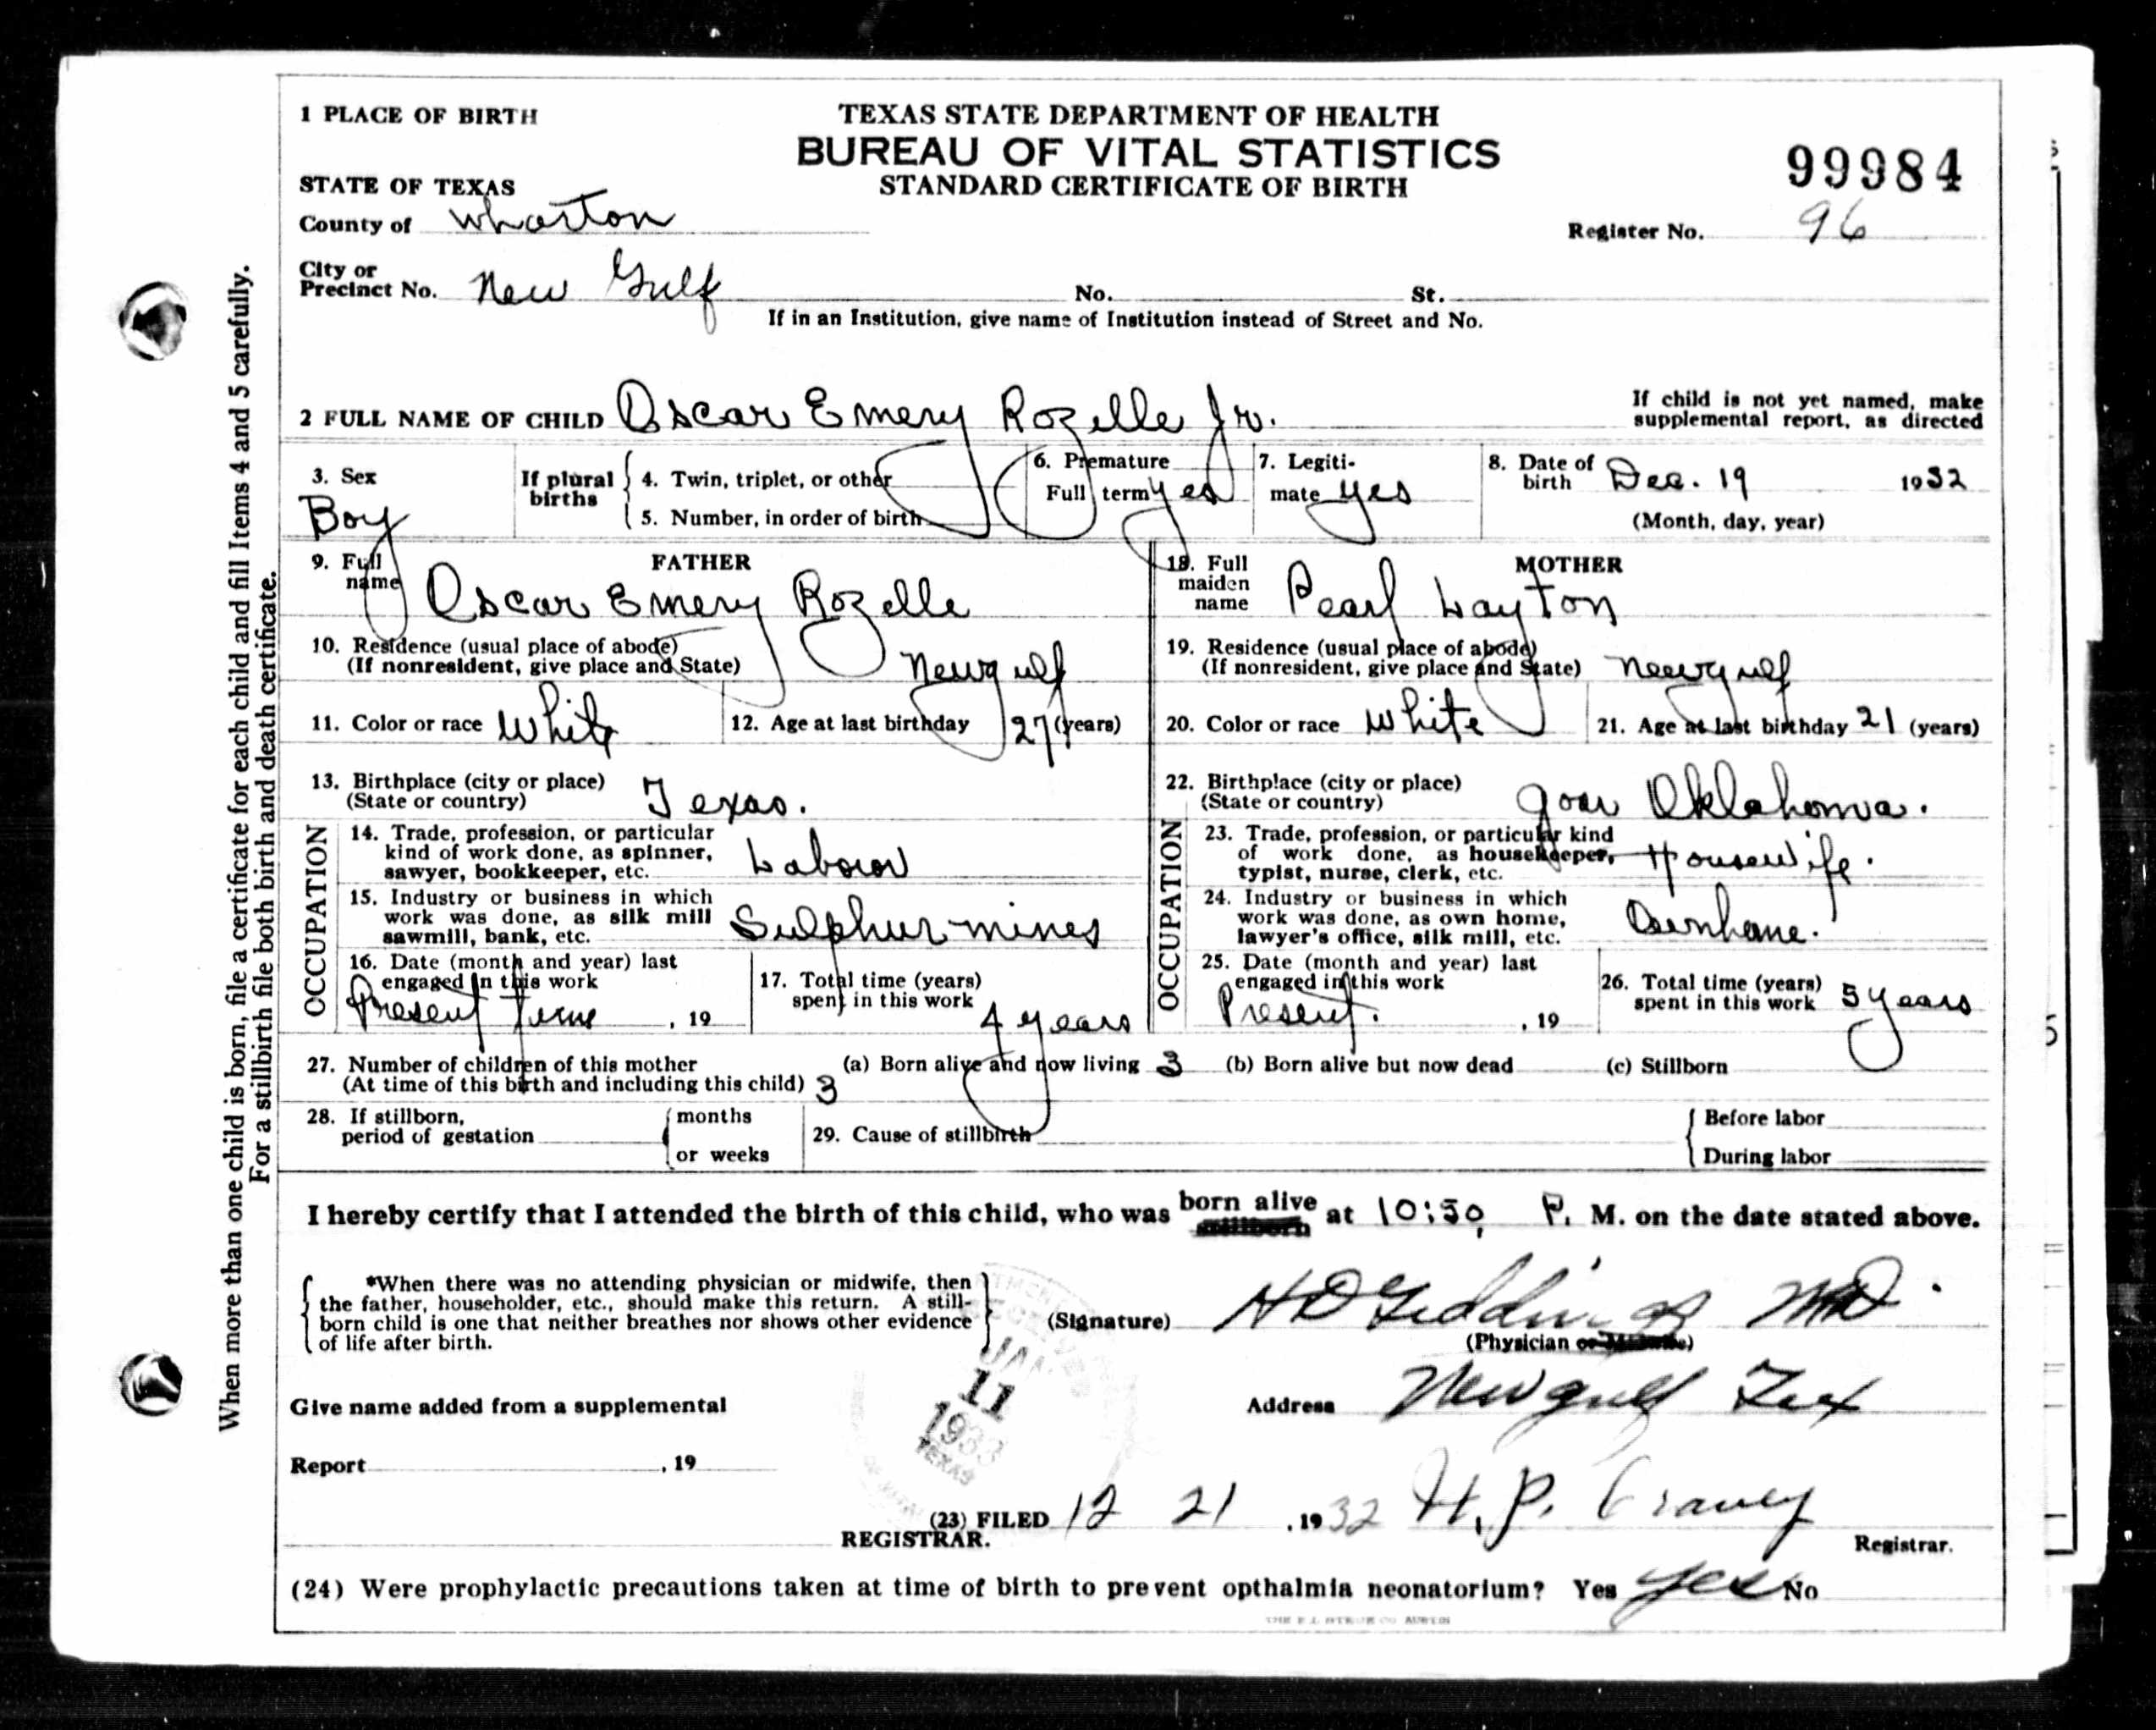 1 PLACE OF BIRTH
TEXAS STATE DEPARTMENT OF HEALTH
BUREAU OF VITAL STATISTICS
STANDARD CERTIFICATE OF BIRTH
99984
STATE OF TEXAS
County of Wharton
Register No. 96
City or
Precinct No. New Gulf No. St.
If in an Institution, give name of Institution instead of Street and No.
2 FULL NAME OF CHILD Oscar Emery Rozelle Jr.
If child is not yet named, make
supplemental report, as directed
3. Sex
Boy
If plural births
4. Twin, triplet, or other
5. Number, in order of birth
6. Premature
Full term yes
7. Legiti-
mate yes
8. Date of
birth Dec. 19 1932
(Month, day, year)
FATHER
9. Full
name Oscar Emery Rozelle
10. Residence (usual place of abode)
(If nonresident, give place and State) Newgulf
11. Color or race White
12. Age at last birthday 27 (years)
13. Birthplace (city or place)
(State or country) Texas.
OCCUPATION
14. Trade, profession, or particular
kind of work done, as spinner,
sawyer, bookkeeper, etc. Labour
15. Industry or business in which
work was done, as silk mill
sawmill, bank, etc. Sulphur mines
16. Date (month and year) last
engaged in this work
Present time , 19
17. Total time (years)
spent in this work 4 years
MOTHER
18. Full
maiden
name Pearl Layton
19. Residence (usual place of abode)
(If nonresident, give place and State) Newgulf
20. Color or race White
21. Age at last birthday 21 (years)
22. Birthplace (city or place)
(State or country) Oklahoma.
OCCUPATION
23. Trade, profession, or particular kind
of work done, as housekeeper,
typist, nurse, clerk, etc. Housewife.
24. Industry or business in which
work was done, as own home,
lawyer's office, silk mill, etc. Ownhome.
25. Date (month and year) last
engaged in this work
Present. , 19
26. Total time (years)
spent in this work 5 years
27. Number of children of this mother
(At time of this birth and including this child) 3
(a) Born alive and now living 3 (b) Born alive but now dead (c) Stillborn
28. If stillborn,
period of gestation
months
or weeks
29. Cause of stillbirth
Before labor
During labor
I hereby certify that I attended the birth of this child, who was born alive stillborn at 10:50 P. M. on the date stated above.
*When there was no attending physician or midwife, then
the father, householder, etc., should make this return. A still-
born child is one that neither breathes nor shows other evidence
of life after birth.
(Signature) H D Giddings MD.
(Physician or Midwife)
JAN
11
1933
TEXAS
Give name added from a supplemental
Address Newgulf Tex
Report , 19
(23) FILED 12 21 , 1932 H. P. Cravey
REGISTRAR.
Registrar.
(24) Were prophylactic precautions taken at time of birth to prevent opthalmia neonatorium? Yes yes No
When more than one child is born, file a certificate for each child and fill Items 4 and 5 carefully.
For a stillbirth file both birth and death certificate.